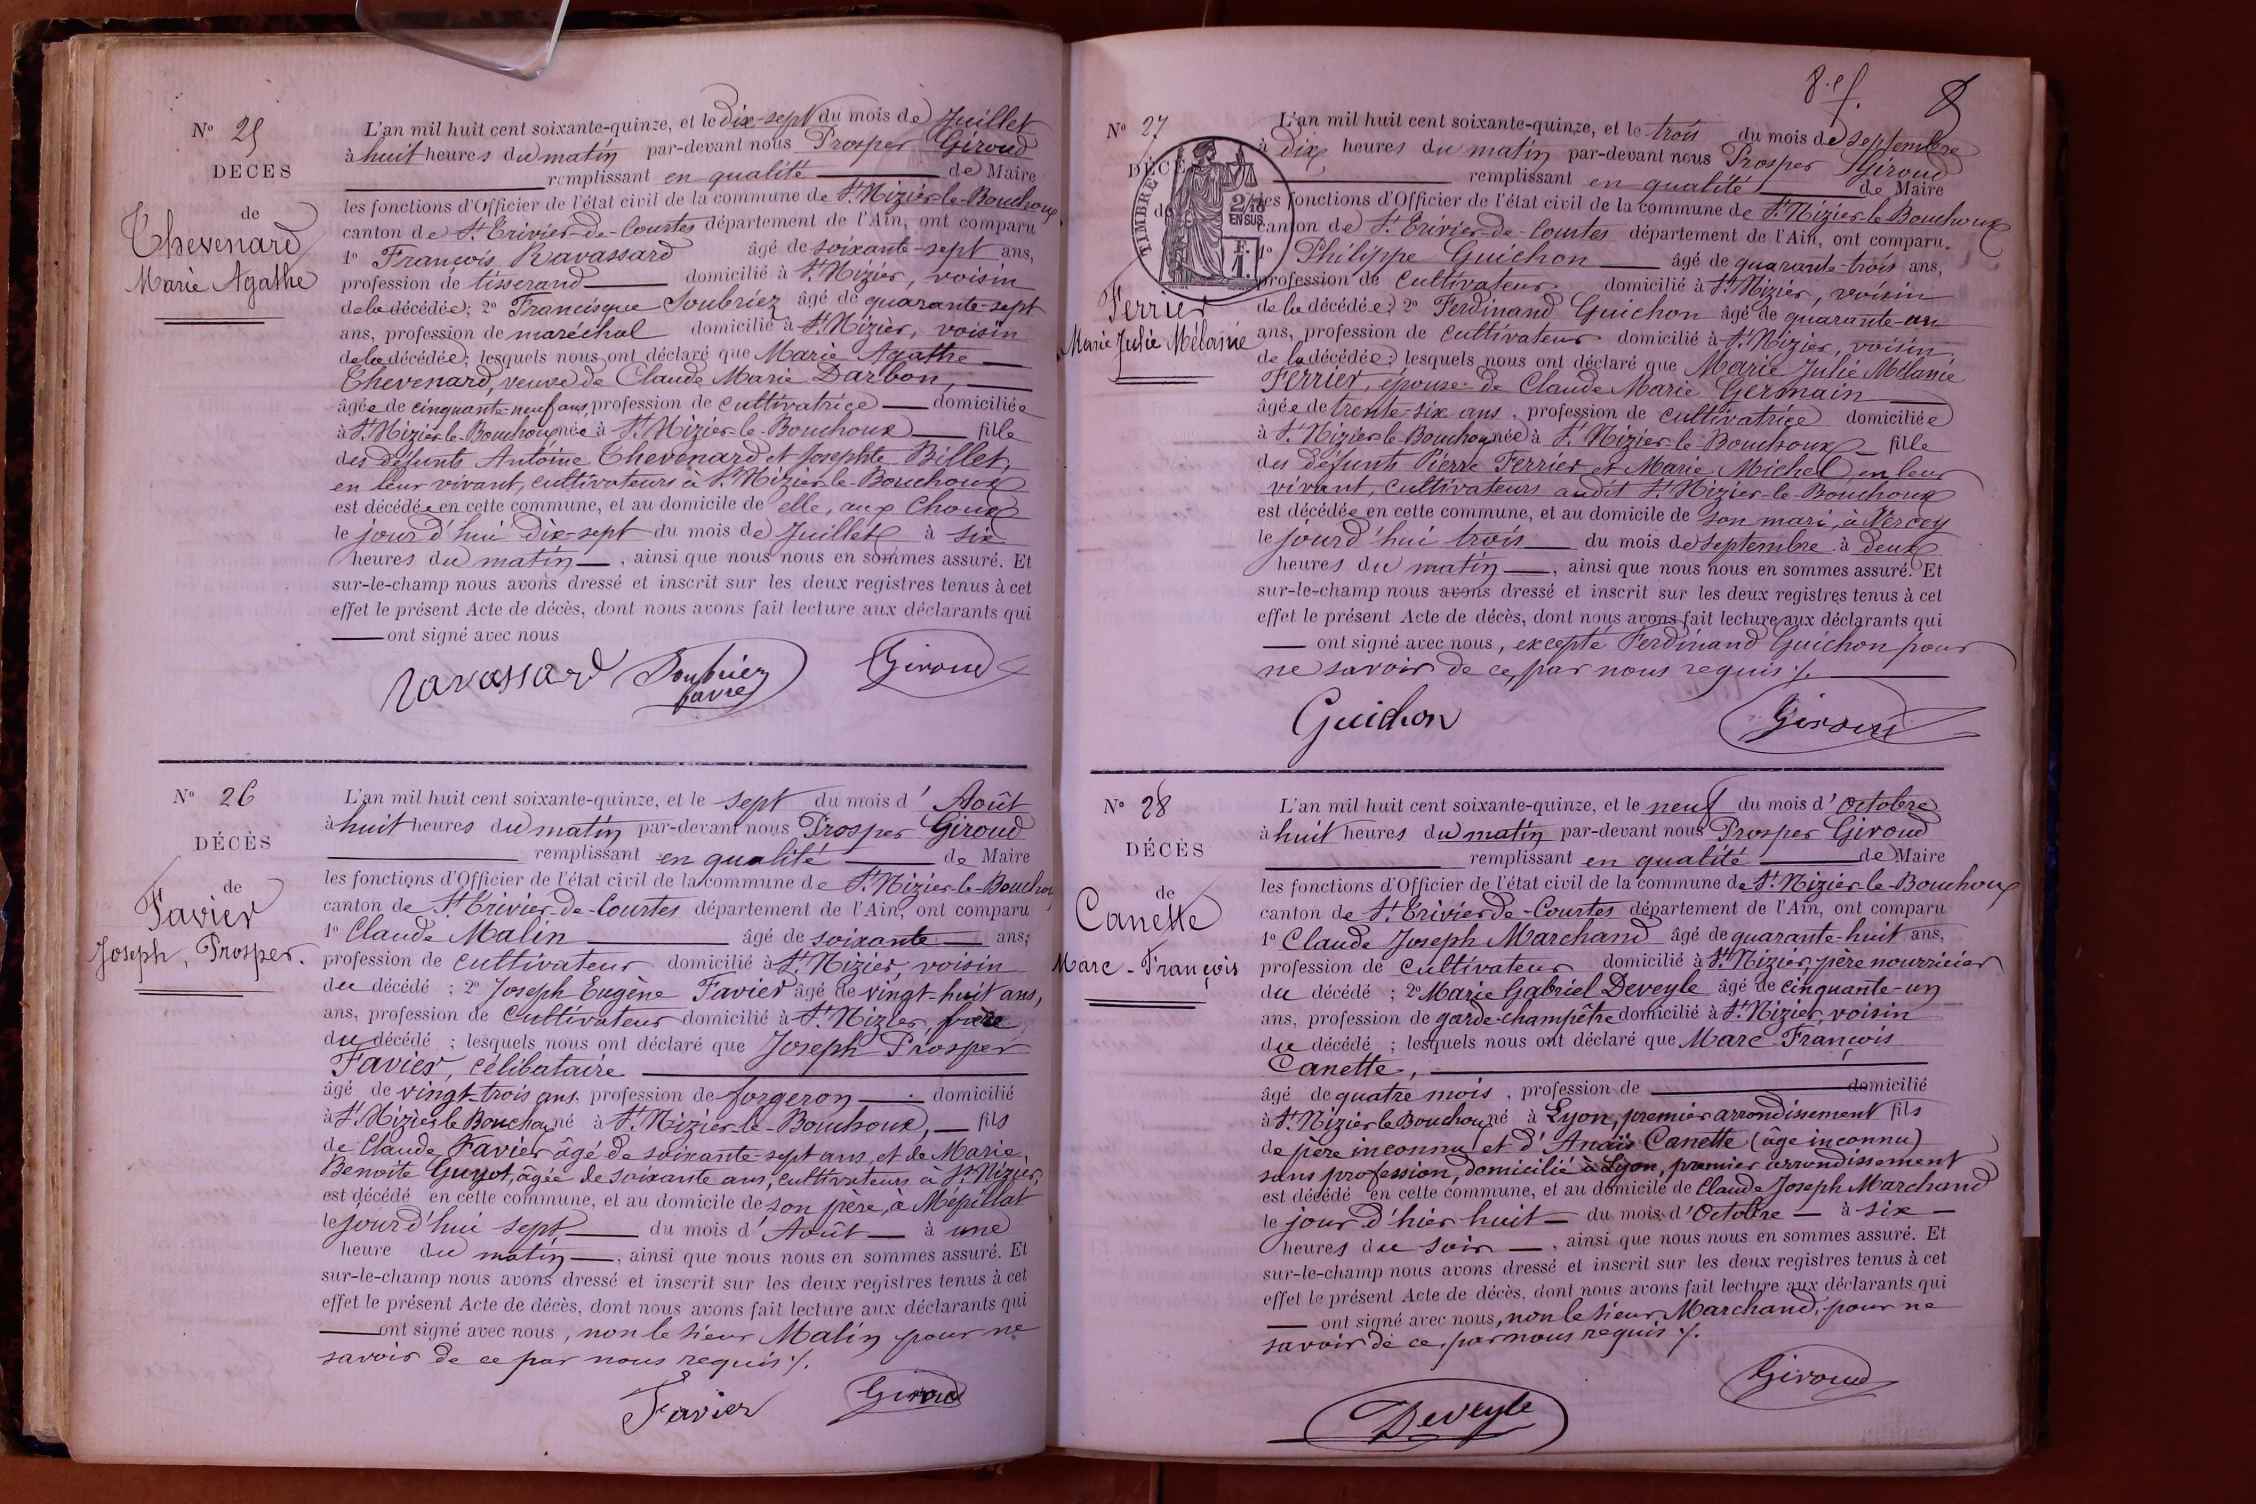 Nº 25
DÉCÈS
de
Thevenard
Marie Agathe
L'an mil huit cent soixante-quinze, et le dix-sept du mois de Juillet
à huit heures du matin par-devant nous Prosper Giroud
remplissant en qualité de Maire
les fonctions d'Officier de l'état civil de la commune de St Nizier-le-Bouchoux
canton de St Trivier-de-Courtes département de l'Ain, ont comparu
1º François Ravassard âgé de soixante-sept ans,
profession de tisserand domicilié à St Nizier, voisin
de la décédée; 2º Francisque Soubriez âgé de quarante-sept
ans, profession de maréchal domicilié à St Nizier, voisin
de la décédée; lesquels nous ont déclaré que Marie Agathe
Thevenard, veuve de Claude Marie Darbon,
âgée de cinquante-neuf ans, profession de cultivatrice domiciliée
à St Nizier-le-Bouchoux née à St Nizier-le-Bouchoux fille
des défunts Antoine Thevenard et Josephte Billet,
en leur vivant, cultivateurs à St Nizier-le-Bouchoux
est décédée en cette commune, et au domicile de elle, aux Choux
le jourd'hui dix-sept du mois de Juillet à six
heures du matin, ainsi que nous nous en sommes assuré. Et
sur-le-champ nous avons dressé et inscrit sur les deux registres tenus à cet
effet le présent Acte de décès, dont nous avons fait lecture aux déclarants qui
ont signé avec nous
Ravassard Soubriez Giroud
favre
Nº 26
DÉCÈS
de
Favier
Joseph, Prosper.
L'an mil huit cent soixante-quinze, et le sept du mois d'Août
à huit heures du matin par-devant nous Prosper Giroud
remplissant en qualité de Maire
les fonctions d'Officier de l'état civil de la commune de St Nizier-le-Bouchoux
canton de St Trivier-de-Courtes département de l'Ain, ont comparu
1º Claude Malin âgé de soixante ans;
profession de cultivateur domicilié à St Nizier, voisin
du décédé ; 2º Joseph Eugène Favier âgé de vingt-huit ans,
ans, profession de cultivateur domicilié à St Nizier, frère
du décédé ; lesquels nous ont déclaré que Joseph Prosper
Favier, célibataire
âgé de vingt-trois ans, profession de forgeron domicilié
à St Nizier-le-Bouchoux né à St Nizier-le-Bouchoux, fils
de Claude Favier âgé de soixante sept ans, et de Marie,
Benoite Guyot, âgée de soixante ans, cultivateurs à St Nizier,
est décédé en cette commune, et au domicile de son père, à Mépillat
le jourd'hui sept du mois d'Août à une
heure du matin, ainsi que nous nous en sommes assuré. Et
sur-le-champ nous avons dressé et inscrit sur les deux registres tenus à cet
effet le présent Acte de décès, dont nous avons fait lecture aux déclarants qui
ont signé avec nous, non le sieur Malin pour ne
savoir de ce par nous requis ./.
Favier Giroud
8
Nº 27
DÉCÈS
de
Ferrier
Marie Julie Mélanie
TIMBRE
2/10
EN SUS
F.
1.
L'an mil huit cent soixante-quinze, et le trois du mois de septembre
à dix heures du matin par-devant nous Prosper Giroud
remplissant en qualité de Maire
les fonctions d'Officier de l'état civil de la commune de St Nizier-le-Bouchoux
canton de St Trivier-de-Courtes département de l'Ain, ont comparu.
1º Philippe Guichon âgé de quarante-trois ans,
profession de cultivateur domicilié à St Nizier, voisin
de la décédée; 2º Ferdinand Guichon âgé de quarante-un
ans, profession de cultivateur domicilié à St Nizier, voisin
de la décédée; lesquels nous ont déclaré que Marie Julie Mélanie
Ferrier, épouse de Claude Marie Germain
âgée de trente-six ans, profession de cultivatrice domiciliée
à St Nizier-le-Bouchoux née à St Nizier-le-Bouchoux fille
des défunts Pierre Ferrier et Marie Michel, en leur
vivant, cultivateurs audit St Nizier-le-Bouchoux
est décédée en cette commune, et au domicile de son mari, à Vercey
le jourd'hui trois du mois de septembre à deux
heures du matin, ainsi que nous nous en sommes assuré. Et
sur-le-champ nous avons dressé et inscrit sur les deux registres tenus à cet
effet le présent Acte de décès, dont nous avons fait lecture aux déclarants qui
ont signé avec nous, excepté Ferdinand Guichon pour
ne savoir de ce, par nous requis ./.
Guichon Giroud
Nº 28
DÉCÈS
de
Canette
Marc-François
L'an mil huit cent soixante-quinze, et le neuf du mois d'Octobre
à huit heures du matin par-devant nous Prosper Giroud
remplissant en qualité de Maire
les fonctions d'Officier de l'état civil de la commune de St Nizier-le-Bouchoux
canton de St Trivier-de-Courtes département de l'Ain, ont comparu
1º Claude Joseph Marchand âgé de quarante-huit ans,
profession de cultivateur domicilié à St Nizier, père nourricier
du décédé ; 2º Marie Gabriel Deveyle âgé de cinquante-un
ans, profession de garde-champêtre domicilié à St Nizier, voisin
du décédé ; lesquels nous ont déclaré que Marc François
Canette,
âgé de quatre mois, profession de domicilié
à St Nizier le Bouchoux né à Lyon, premier arrondissement fils
de père inconnu et d'Anaïs Canette (âge inconnu)
sans profession, domicilié à Lyon, premier arrondissement
est décédé en cette commune, et au domicile de Claude Joseph Marchand
le jour d'hier huit du mois d'Octobre à six
heures du soir, ainsi que nous nous en sommes assuré. Et
sur-le-champ nous avons dressé et inscrit sur les deux registres tenus à cet
effet le présent Acte de décès, dont nous avons fait lecture aux déclarants qui
ont signé avec nous, non le sieur Marchand, pour ne
savoir de ce, par nous requis ./.
Giroud
Deveyle